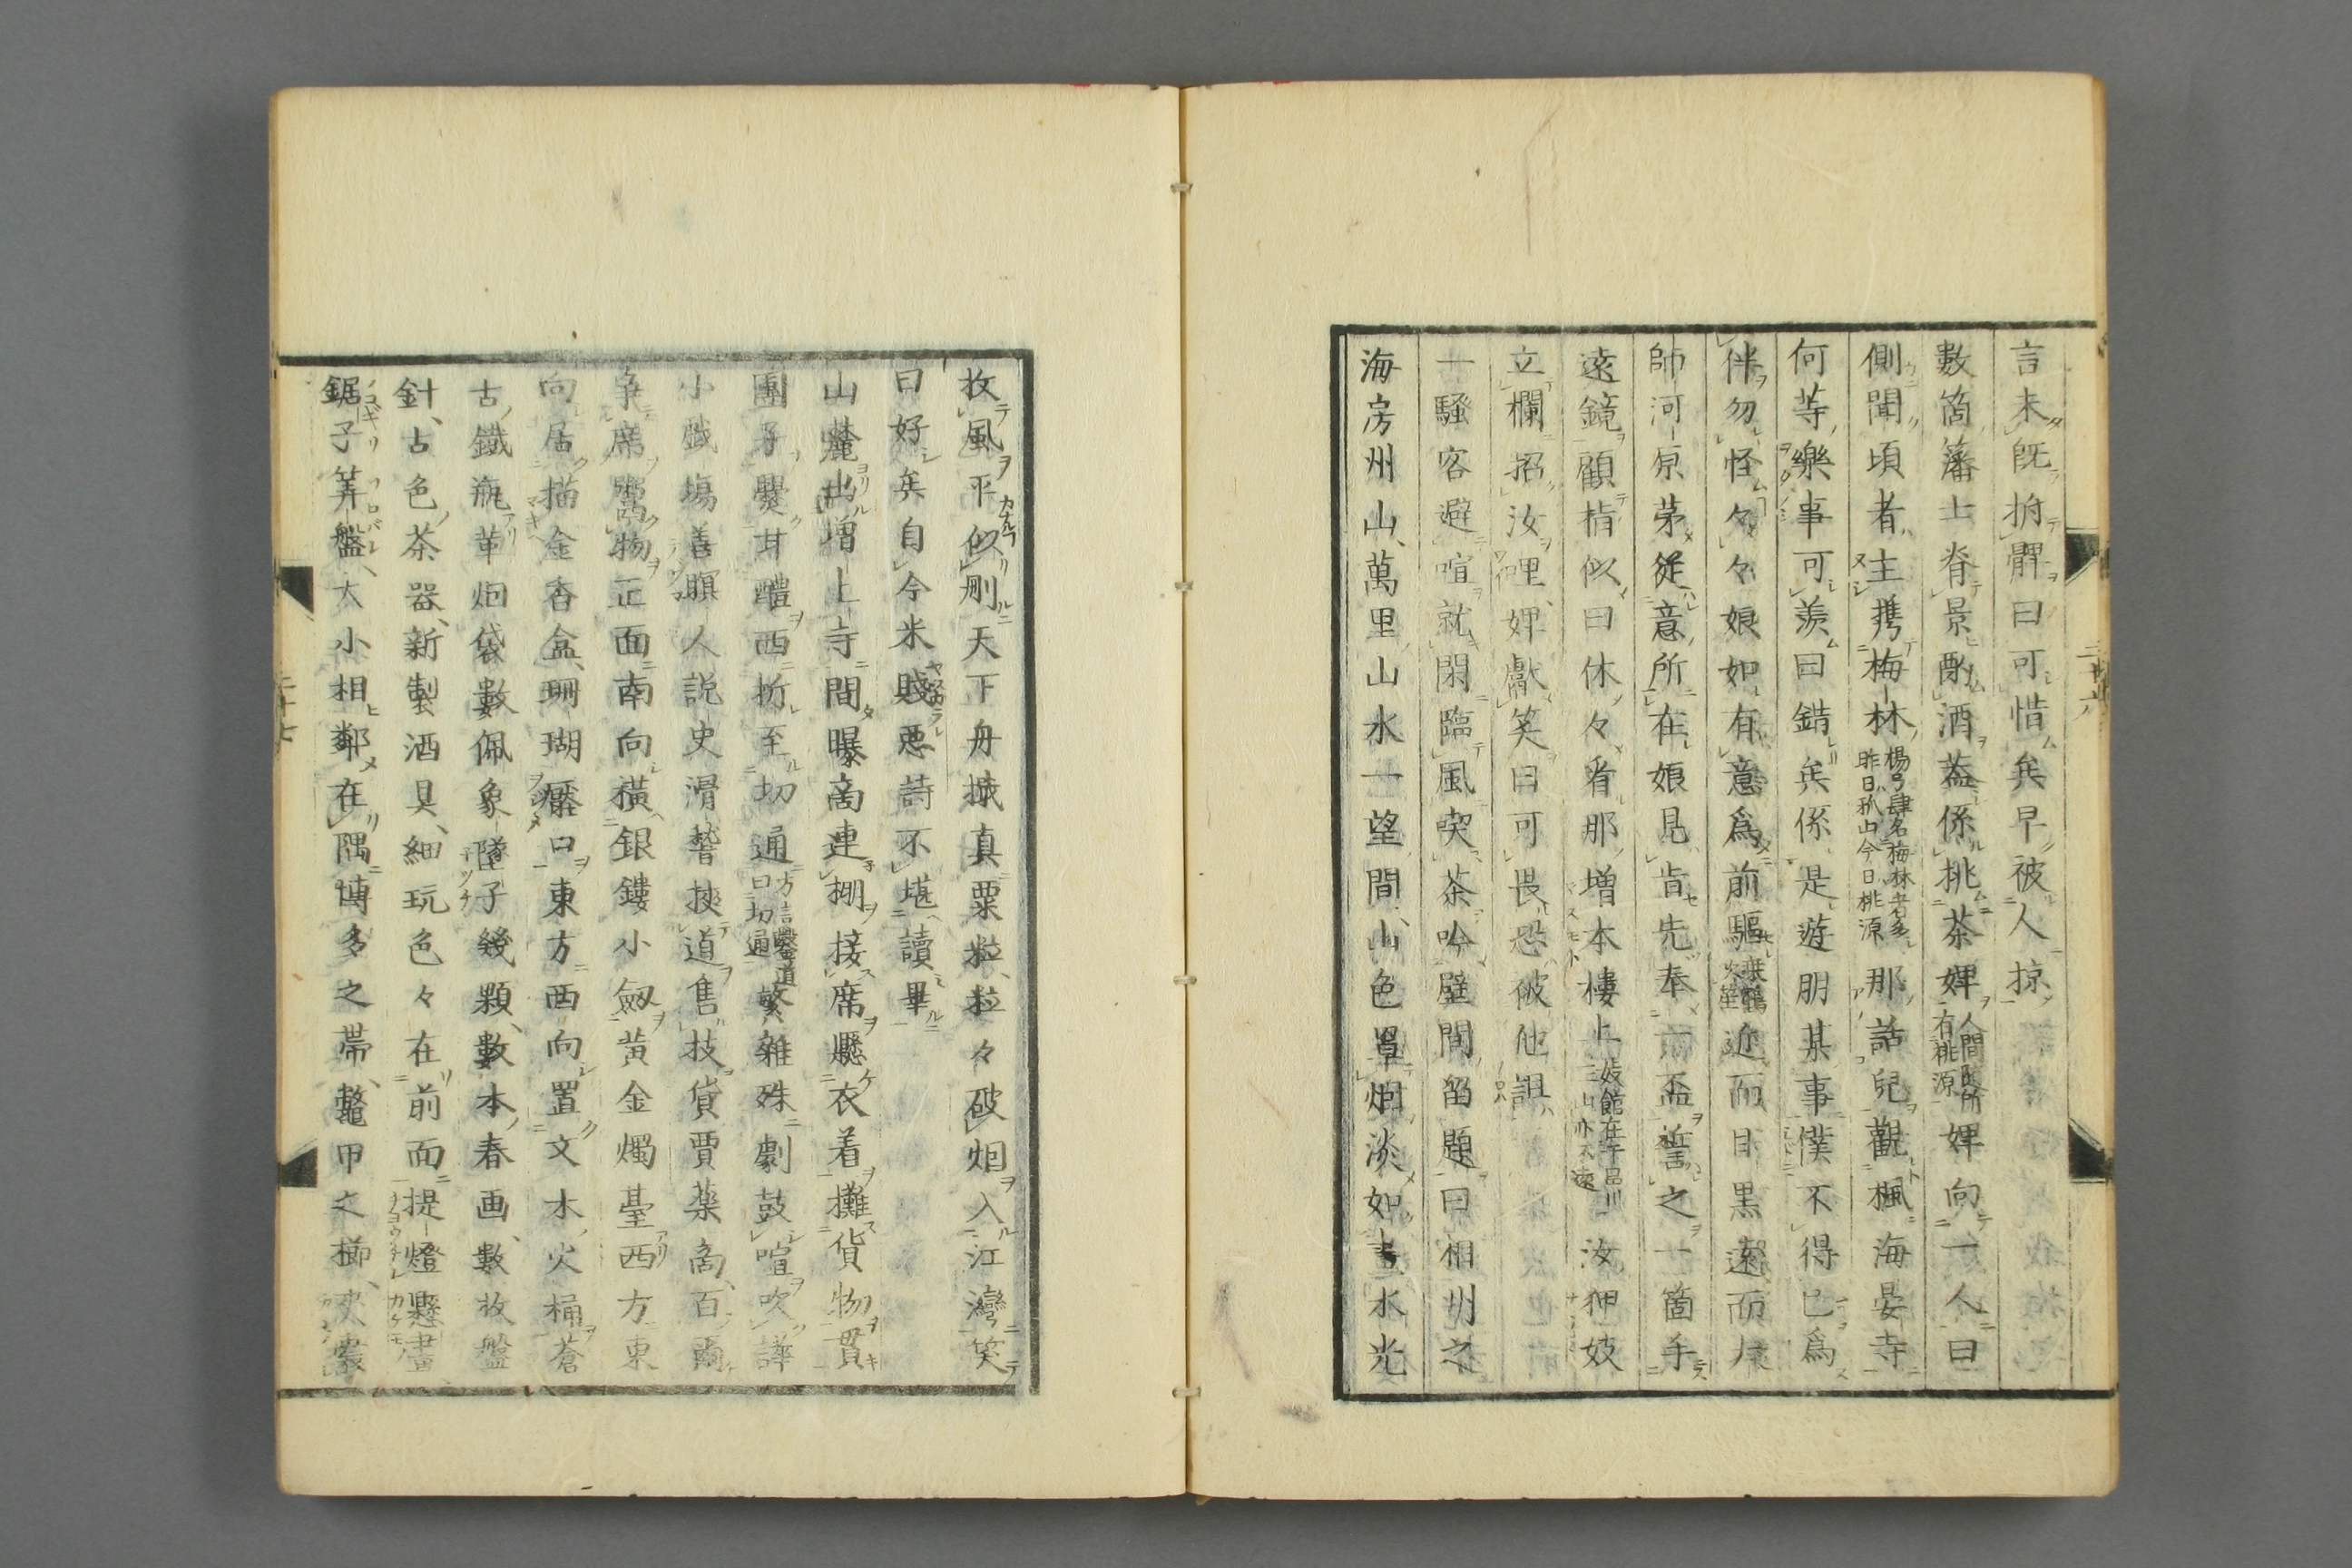 言未既拊髀曰可惜矣早被人掠
數箇藩士脊景酌酒蓋係挑茶婢人間是所有桃源婢向一人曰
側聞頃者主携梅林楊弓肆名梅林者多昨日狐山今日桃源那話兒觀楓海晏寺
何等樂事可羨曰錯矣係是遊朋某事僕不得已爲
伴勿怪々々娘如有意爲前驅近而目黒遠而
師河原茅從意所在娘見肯先奉一盃誓之一箇手
遠鏡顧指似曰休々看那増本樓上妓館在于品川三山亦不遠汝狎妓
立欄招汝哩婢獻笑曰可畏恐彼他詛
一騷客避喧就閑臨風喫茶吟壁間留題曰相州之
海房州山萬里山水一望間山色罩烟淡如畫水光
枚風平似剛天下舟城真粟粒粒々破烟入江灣笑
曰好矣自今米賤惡詩不堪讀畢
山麓出增上寺間曝商連棚接席懸衣着攤貨物貫
團子釁甘醴西折至切通方言鑿道曰切通繁雜殊劇鼓喧吹譁
小戲場善瞑人説史滑誓挾道售技貨賈藥商百
爭席鬻物正面南向横銀鏤小劔黄金燭臺西方東
向居描金香盒珊瑚緊口東方西向置文木火桶蒼
古鐵瓶革烟袋數佩象墜子幾顆數本春画數枚盤
針占色茶器新製酒具細玩色々在前面提燈懸畫
鋸子算盤大小相鄰在隅博多之帶鼈甲之櫛
二十六
二十七